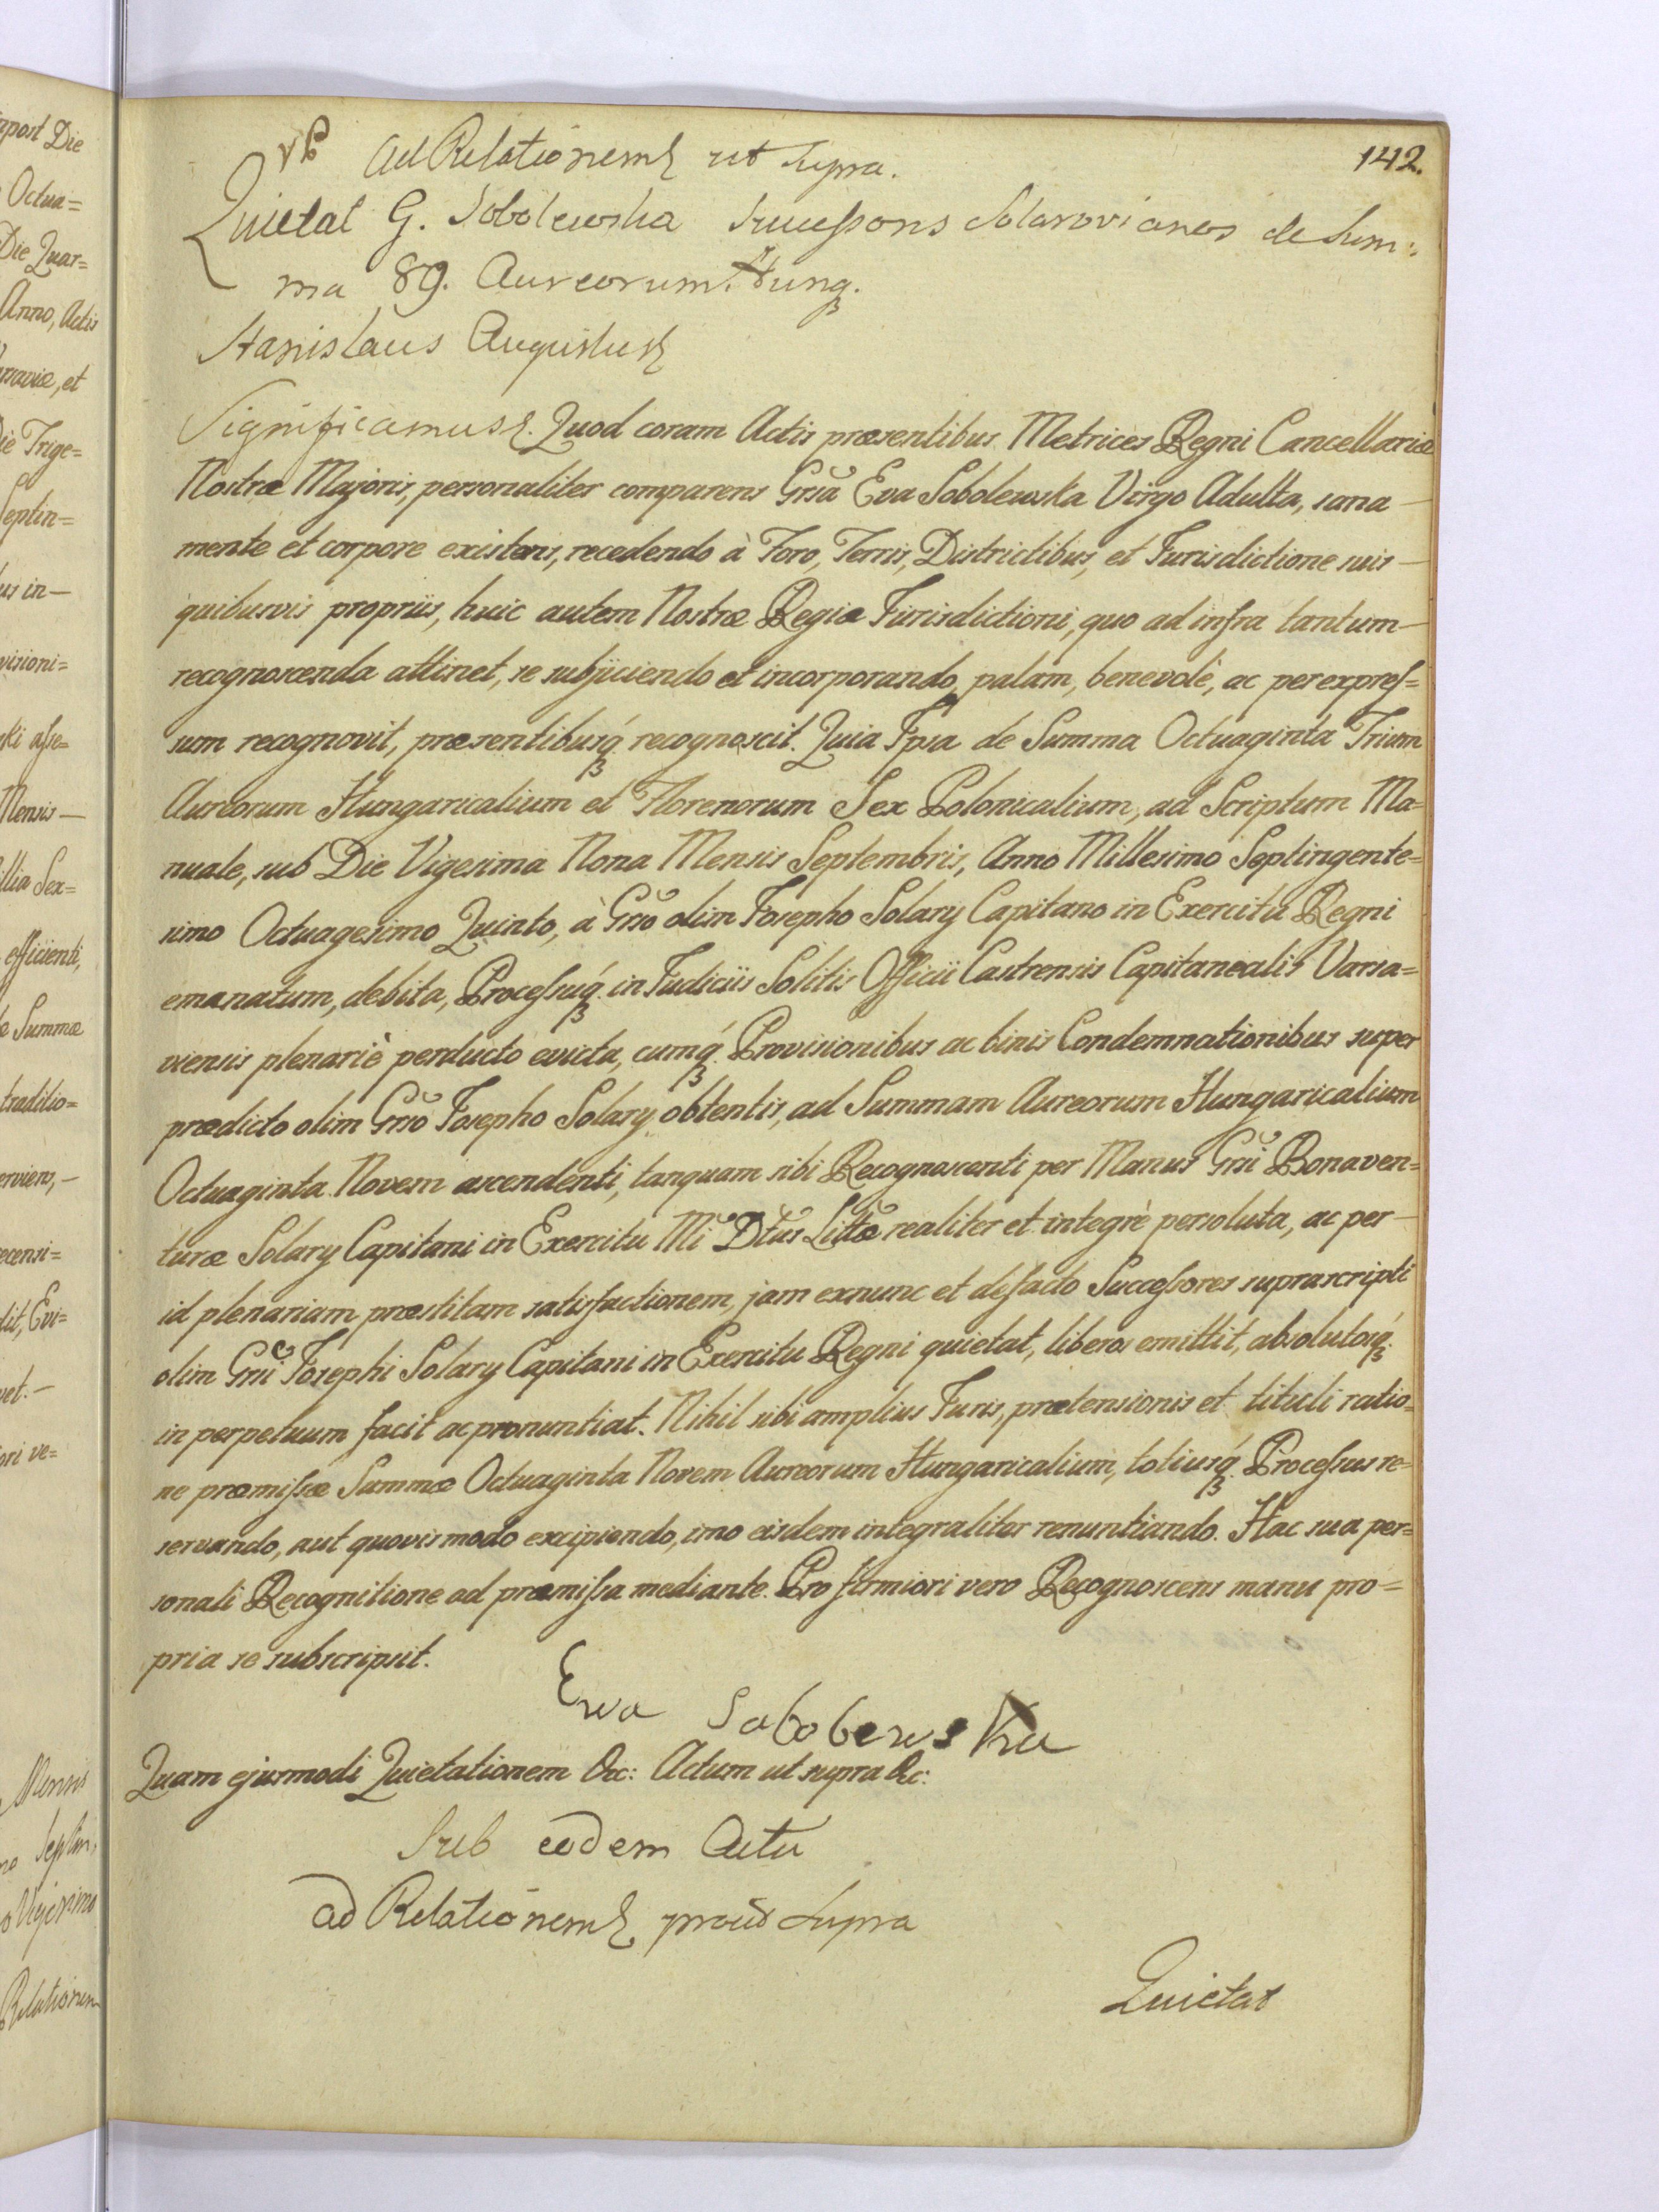 142.
Ad Relationem ut supra.
Quietat G. Sobolewska Successores Solarovianos de Sum:
ma 89. Aureorum Hung.
Stanislaus Augustus
Significamus. Quod coram Actis præsentibus Metrices Regni Cancellariæ
Nostræ Majoris, personaliter comparens Grsa Eva Sobolewska Virgo Adulta, sana
mente et corpore existens, recedendo à Foro, Terris, Districtibus, et Jurisdictione suis
quibusvis propriis, huic autem Nostræ Regiæ Jurisdictioni, quo ad infra tantum
recognoscenda attinet, se subjiciendo et incorporando, palam, benevolè, ac per expres=
sum recognovit, præsentibusq́ recognoscit. Quia Ipsa de Summa Octuaginta Trium
Aureorum Hungaricalium et Florenorum Sex Polonicalium, ad Scriptum Ma=
nuale, sub Die Vigesima Nona Mensis Septembris, Anno Millesimo Septingente=
simo Octuagesimo Quinto, à Grso olim Josepho Solary Capitano in Exercitu Regni
emanatum, debita, Processuq́ in Judiciis Solitis Officii Castrensis Capitanealis Varsa=
viensis plenariè perducto evicta, cumq́ Provisionibus ac binis Condemnationibus super
prædicto olim Grso Josepho Solary obtentis, ad Summam Aureorum Hungaricalium
Octuaginta Novem ascendenti, tanquam sibi Recognoscenti per Manus Grsi Bonaven=
turæ Solary Capitani in Exercitu Mi Dtus Littæ realiter et integrè persoluta, ac per
id plenariam præstitam satisfactionem, jam exnunc et defacto Successores suprascripti
olim Grsi Josephi Solary Capitani in Exercitu Regni quietat, liberos emittit, absolutosq́
in perpetuum facit ac pronuntiat. Nihil sibi amplius Juris, prætensionis et tituli ratio=
ne præmissæ Summæ Octuaginta Novem Aureorum Hungaricalium, totiusq́ Processus re=
servando, aut quovis modo excipiendo, imo eisdem integraliter renuntiando. Hac sua per=
sonali Recognitione ad præmissa mediante. Pro firmiori vero Recognoscens manu pro=
pria se subscripsit.
Ewa Sobolewska
Quam ejusmodi Quietationem &c: Actum ut supra &c:
Sub eodem Actu
ad Relationem prout supra
Quietat